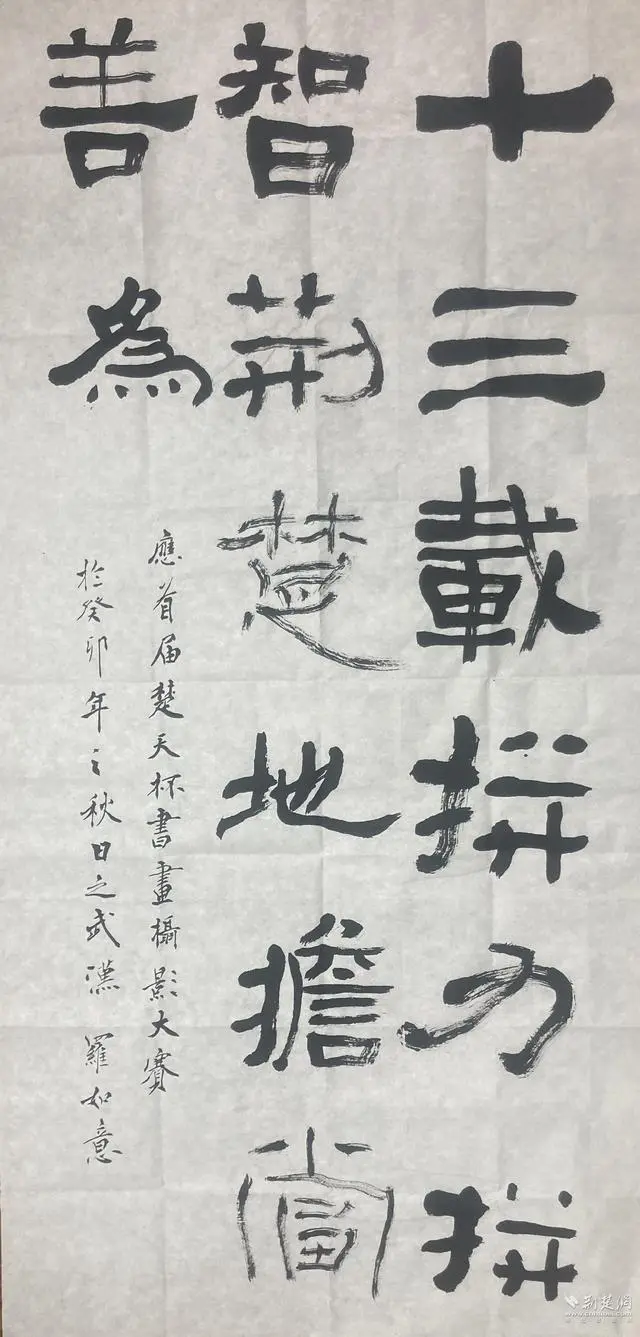 十三載拼力拼
智荆楚地擔當
善為
應首届楚天杯書畫攝影大賽
於癸卯年之秋日之武漢 羅如意
荆楚网